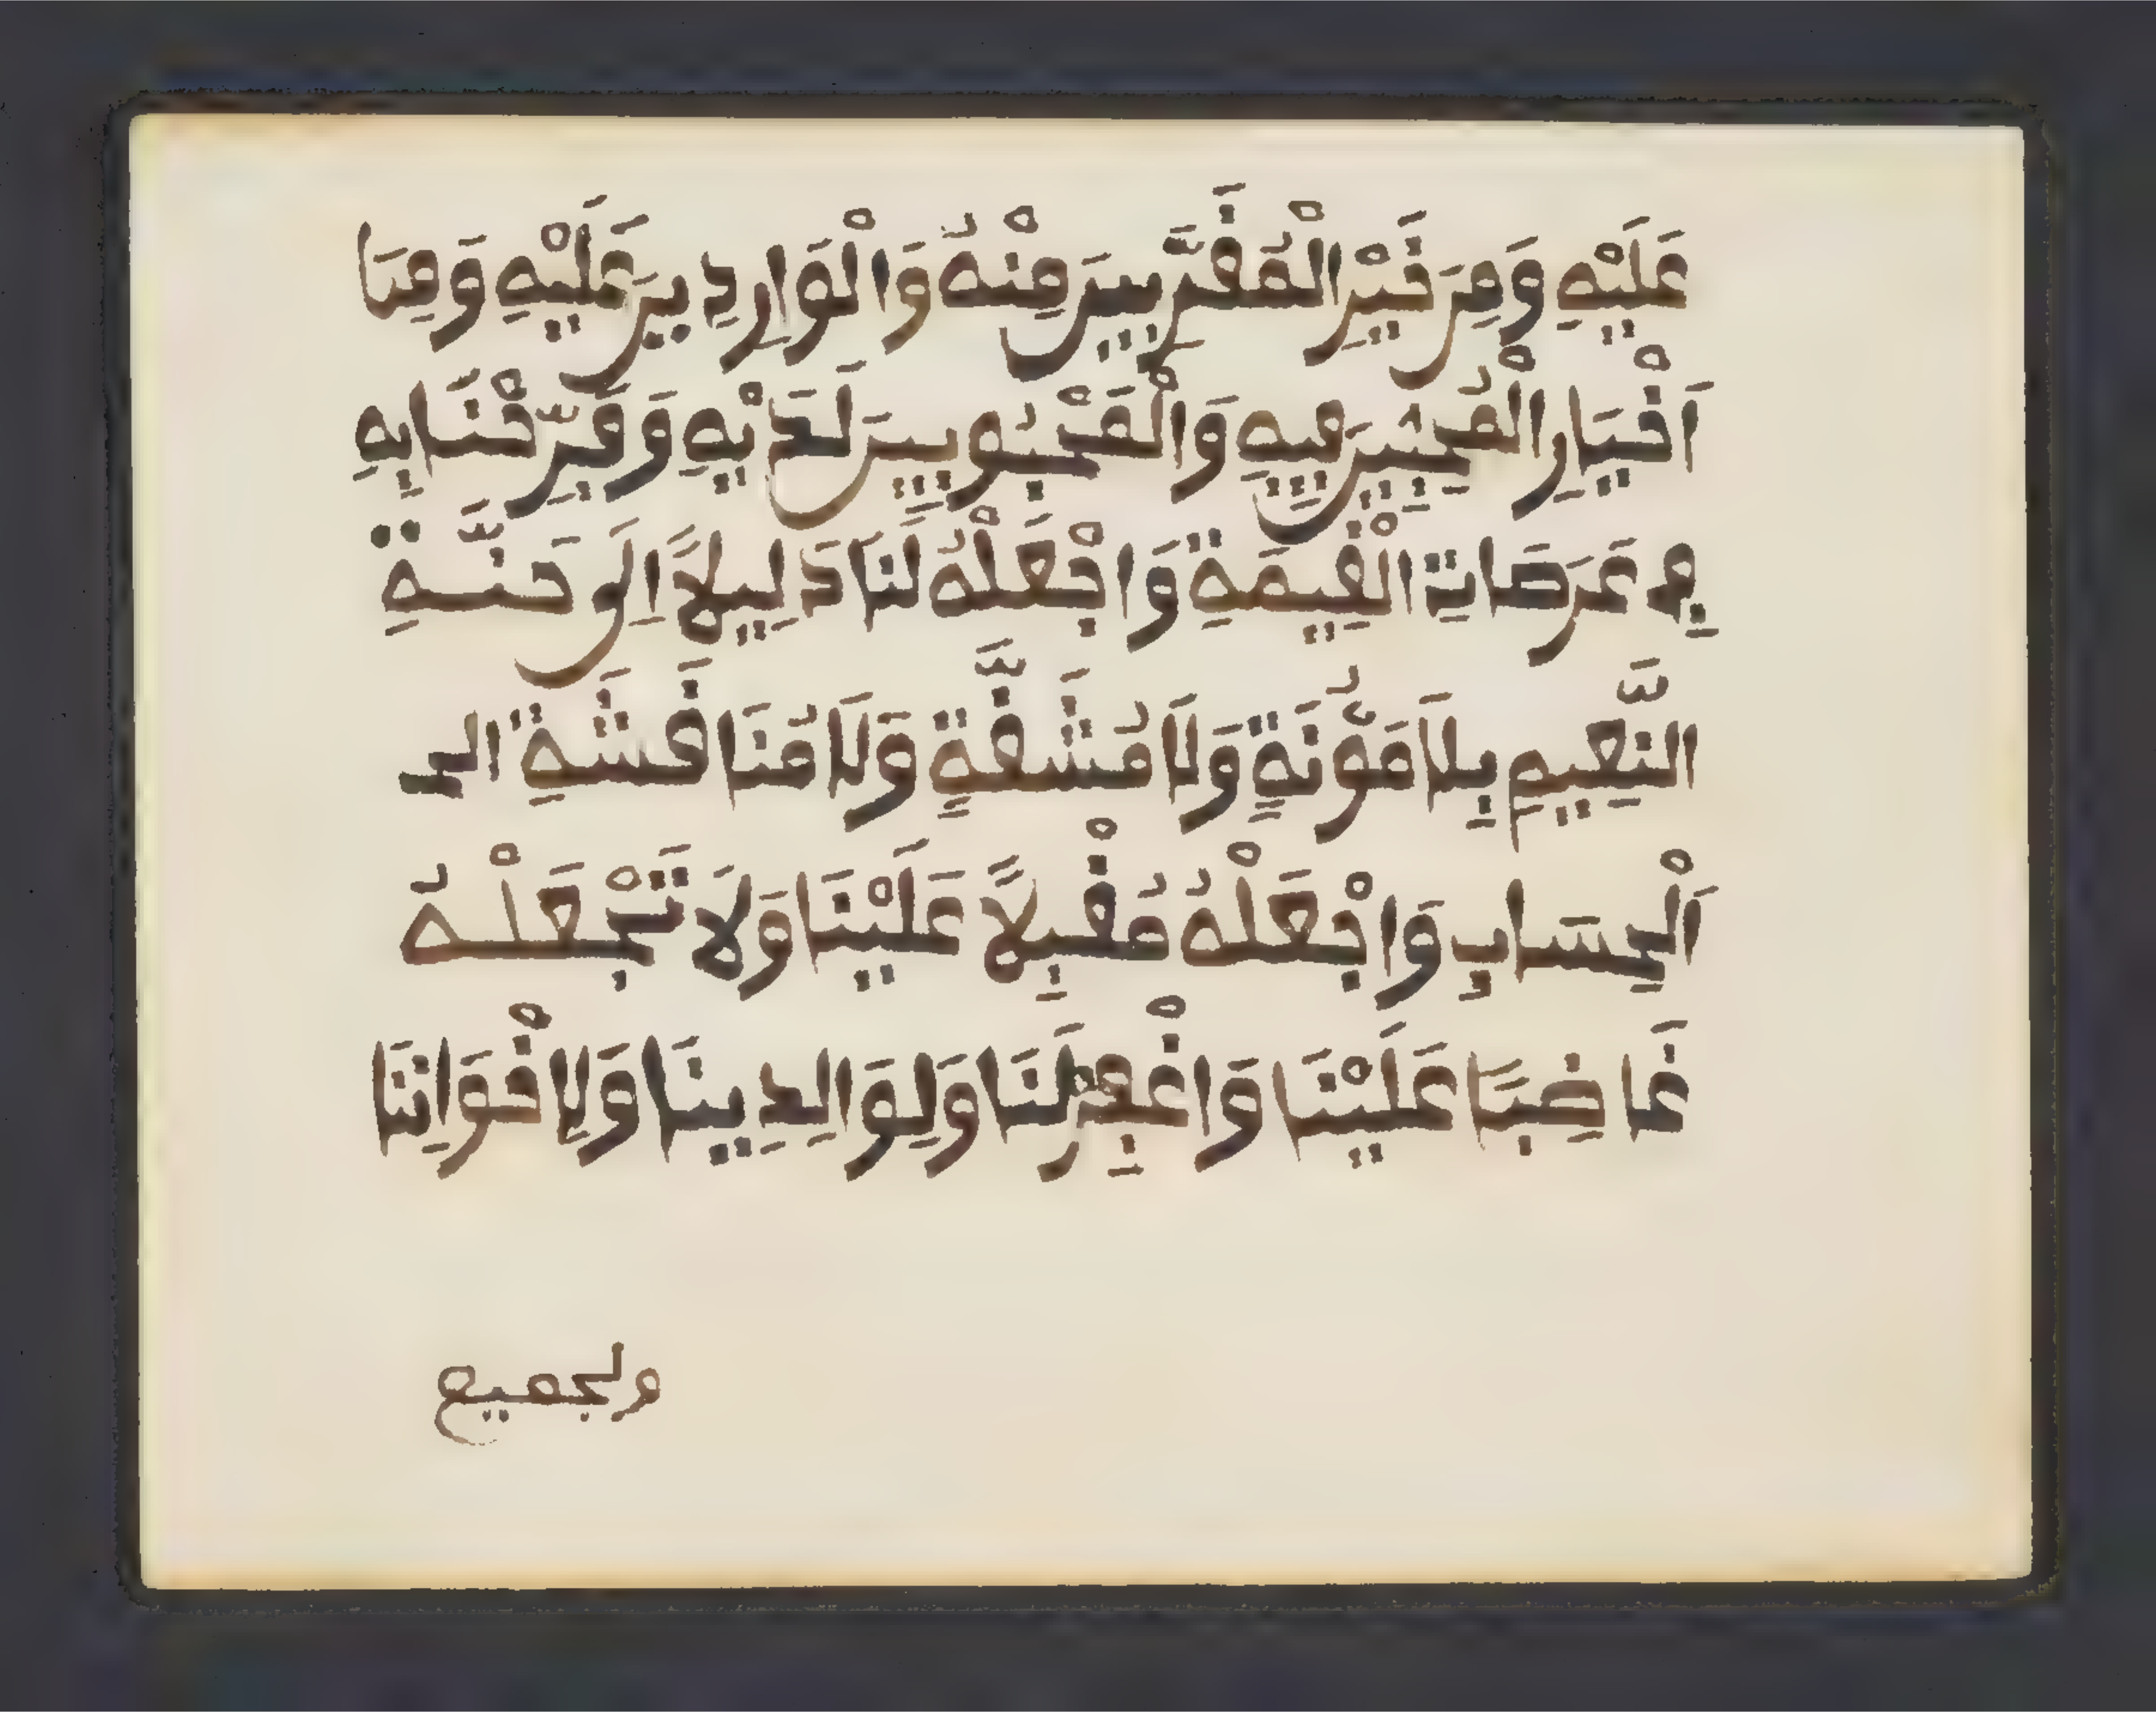 عَلَيْهِ وَمِنَ خَيْرِ الْمُقَرَّبِينَ مِنْهُ وَالْوَارِدِينَ عَلَيْهِ وَمِنَ
اَخْيَارِ الْمُحِبِّينَ فِيهِ وَالْمَحْبُوبِينَ لَدَيْهِ وَفَرِّحْنَا بِهِ
فِي عَرَصَاتِ الْقِيَمَةِ وَاجْعَلْهُ لَنَا دَلِيلاً اِلَى جَنَّةِ
النَّعِيمِ بِلَا مَؤُنَةٍ وَلَا مُشَقَّةٍ وَلَا مُنَاقَشَةِ الح
اَلْحِسَابِ وَاجْعَلْهُ مُقْبِلاً عَلَيْنَا وَلَا تَجْعَلْهُ
غَاضِبًا عَلَيْنَا وَاغْفِرْ لَنَا وَلِوَالِدِينَا وَلِإخْوَانِنَا
ولجميع